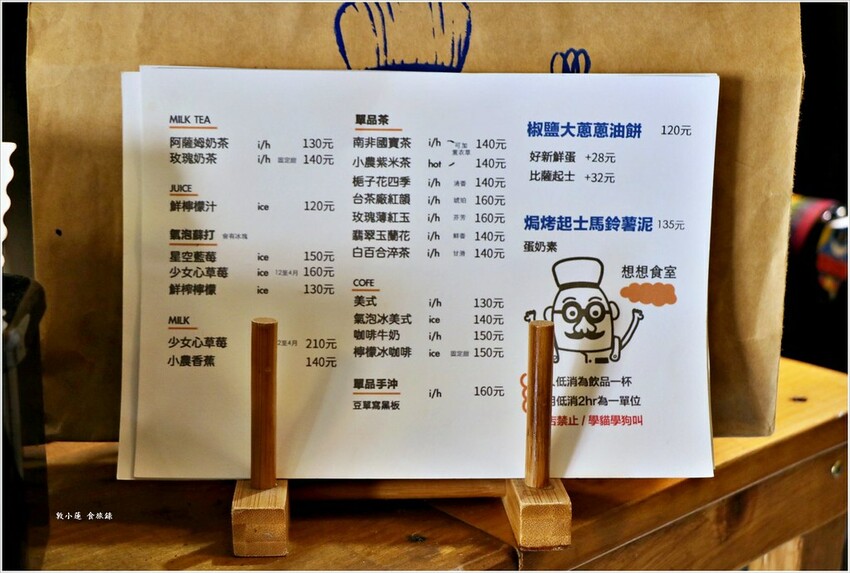 MILK TEA
阿薩姆奶茶 i/h 130元
玫瑰奶茶 i/h 固定甜 140元
JUICE
鮮檸檬汁 ice 120元
氣泡蘇打 皆有冰塊
星空藍莓 ice 150元
少女心草莓 ice 12至4月 160元
鮮榨檸檬 ice 130元
MILK
少女心草莓 2至4月 210元
小農香蕉 140元
單品茶
南非國寶茶 i/h 140元
可加
薰衣草
小農紫米茶 hot 140元
梔子花四季 i/h 清香 140元
台茶廠紅韻 i/h 琥珀 160元
玫瑰薄紅玉 i/h 芬芳 160元
翡翠玉蘭花 i/h 鮮香 140元
白百合淬茶 i/h 甘滑 140元
COFE
美式 i/h 130元
氣泡冰美式 ice 140元
咖啡牛奶 i/h 150元
檸檬冰咖啡 ice 固定甜 150元
單品手沖 i/h 160元
豆單寫黑板
椒鹽大蔥蔥油餅 120元
好新鮮蛋 +28元
比薩起士 +32元
焗烤起士馬鈴薯泥 135元
蛋奶素
想想食室
低消為飲品一杯
低消2hr為一單位
禁止 / 學貓學狗叫
敦小蓮 食旅錄